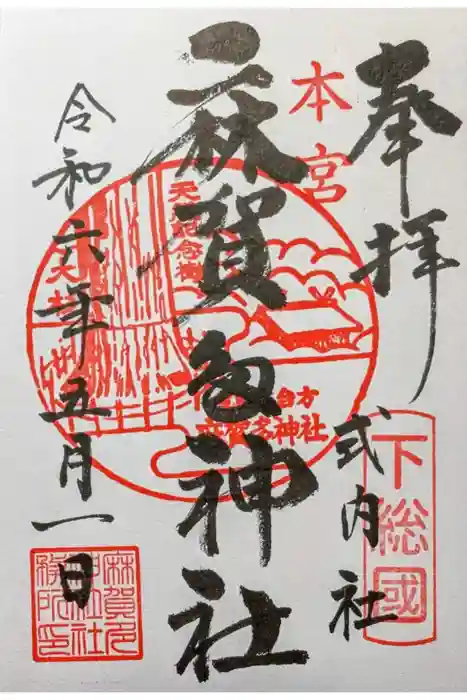 奉拝
本宮
下総國
式内社
麻賀多神社
大杉
台方
麻賀多神社
令和六年五月一日
麻賀多
神社社
務所印